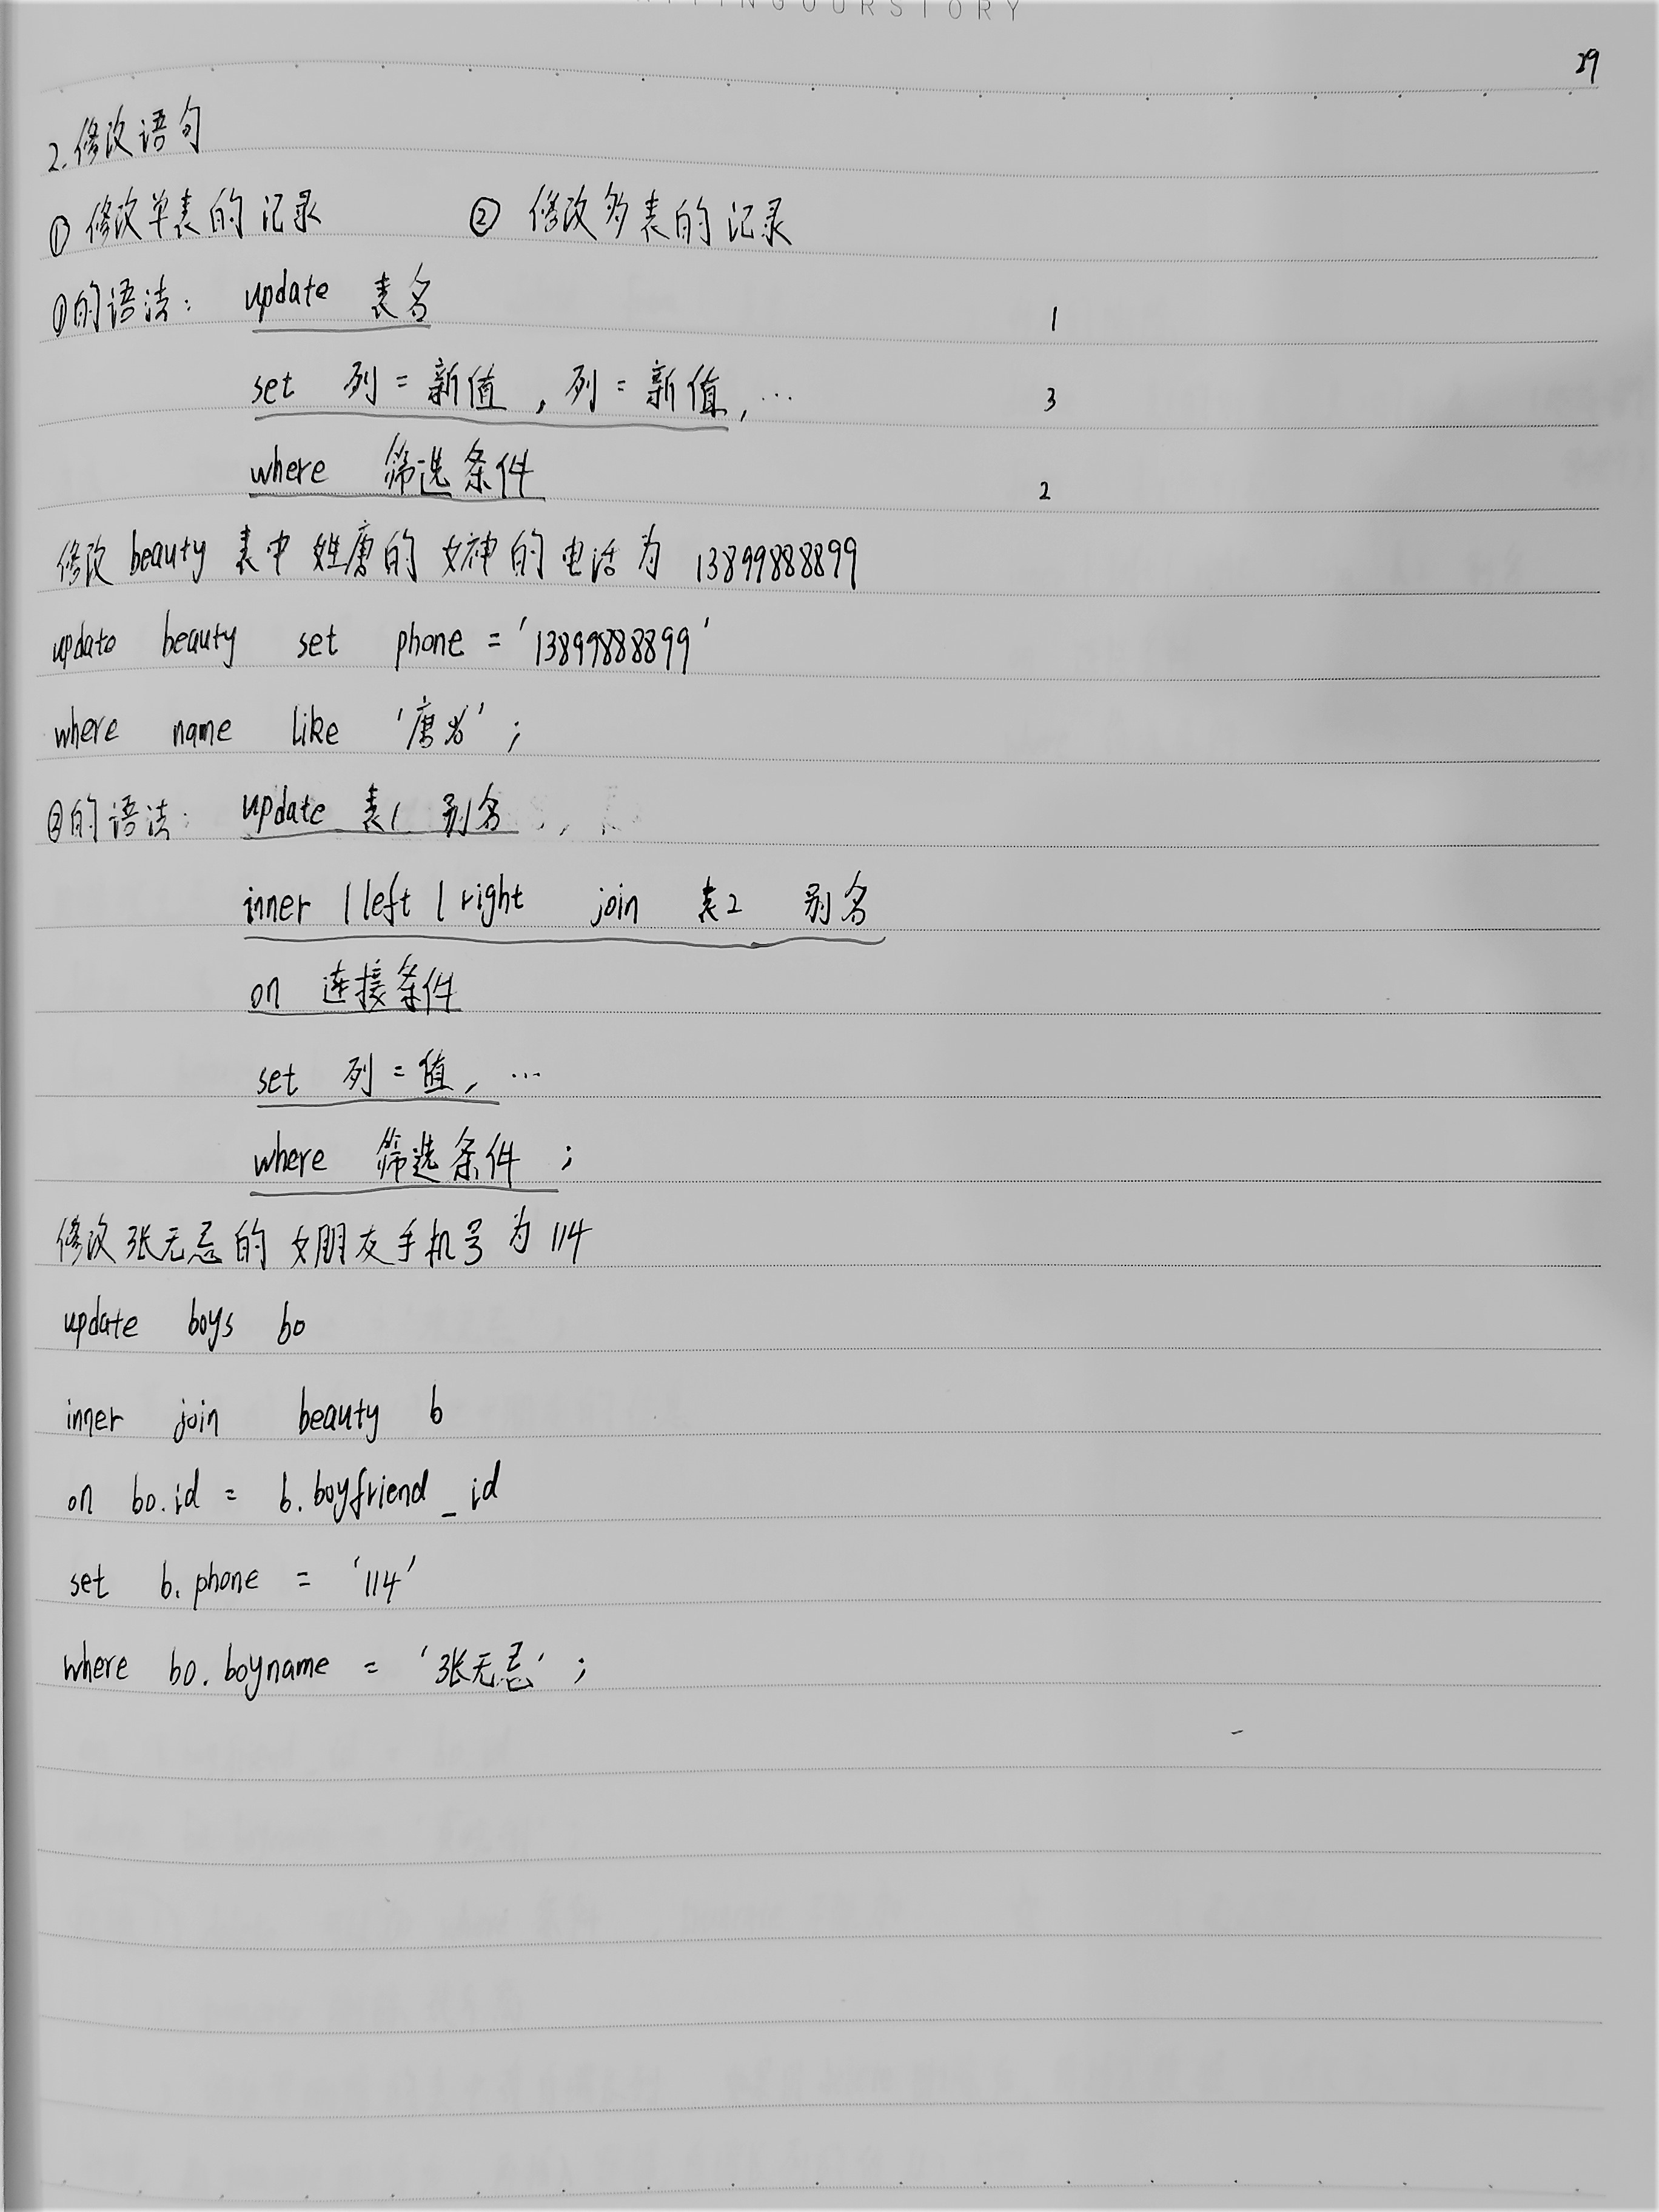 INGOURSTORY
29
2.修改语句
① 修改单表的记录 ② 修改多表的记录
①的语法: update 表名 1
set 列=新值,列=新值,… 3
where 筛选条件 2
修改 beauty 表中姓唐的女神的电话为 13899888899
update beauty set phone='13899888899'
where name like '唐%';
②的语法: update 表1 别名
inner | left | right join 表2 别名
on 连接条件
set 列=值,…
where 筛选条件;
修改张无忌的女朋友手机号为114
update boys bo
inner join beauty b
on bo.id = b.boyfriend_id
set b.phone = '114'
where bo.boyname = '张无忌';